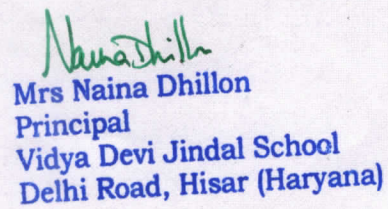 Naina Dhillon
Mrs Naina Dhillon
Principal
Vidya Devi Jindal School
Delhi Road, Hisar (Haryana)